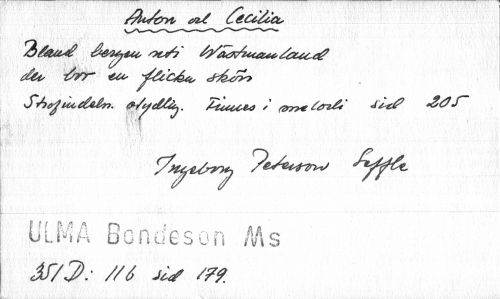 Anton och Cecilia
Bland bergen uti Wästmanland
der bor en flicka skön
Strofindeln. otydlig. Finnes i melodi sid 205
Ingeborg Peterson Seffle
ULMA Bondeson Ms
351 D: 116 sid 179.